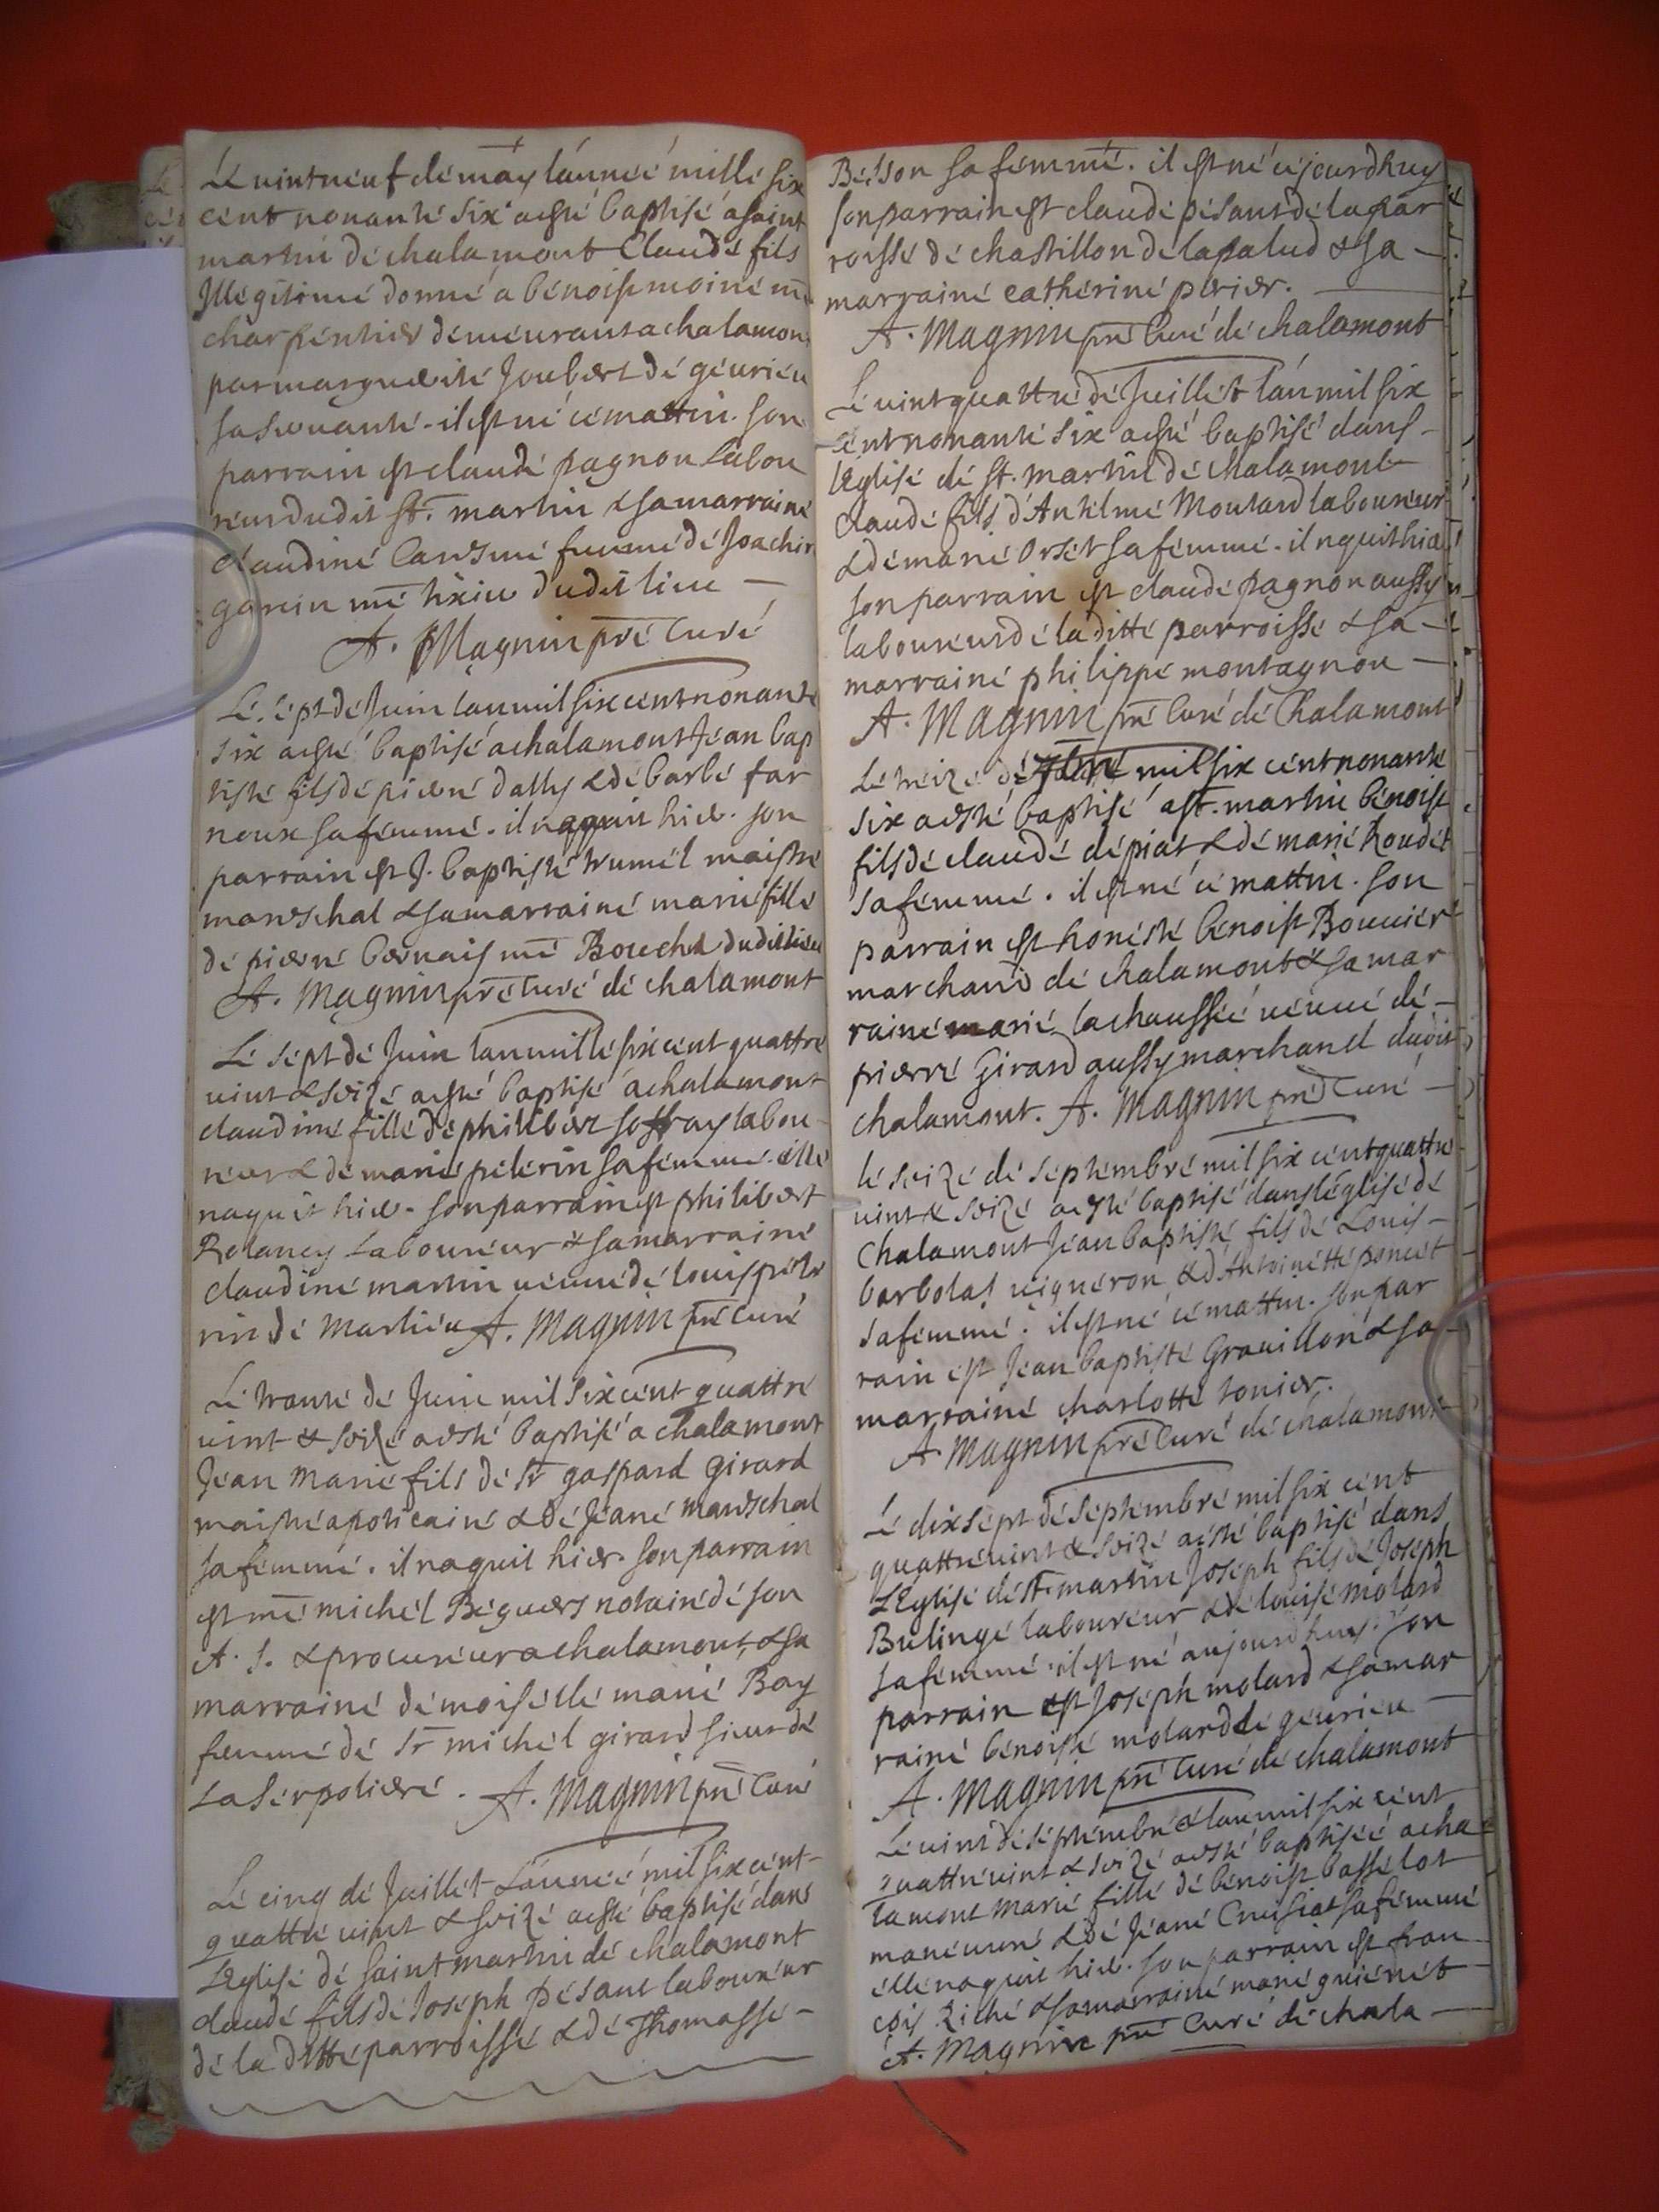 Le vint neuf de may lánneé mille six
cent nonante six a esté baptisé a saint
martin de chalamont Claude fils
Jllegitime donné a benoist moine me
charpentier demeurant a chalamon
par marguerite Joubert de geurieu
sa servante. il est né ce mattin. son
parrain est claude pagnon labou
reur dudit st. martin & sa marraine
claudine femme de Joachin
garin me tixier dudit lieu
A. Magnin pre Curé
Le sept de Juin lan mil six cent nonante
six a esté baptisé a chalamont Jean bap
tiste fils de pierre dally & de barbe far
noux sa femme. il naquit hier. son
parrain est J. baptiste trumel maistre
mareschal & sa marraine marie fille
de pierre bernais me Boucher dudit lieu
A. Magnin pre Curé de chalamont
Le sept de Juin lan mille six cent quattre
vint & seize a esté baptisé a chalamont
claudine fille de philibert soffray labou
reur & de marie pelerin sa femme. elle
naquit hier. son parrain est philibert
Relancy laboureur & sa marraine
claudine martin veuve de louis pele
rin de marlieu A. Magnin pre Curé
Le trante de Juin mil six cent quattre
vint & seize a esté baptisé a chalamont
Jean Marie fils de Sr gaspard girard
maistre apoticaire & de Jeane mareschal
sa femme. il naquit hier. son parrain
est me michel Beguers notaire de son
A. S. & procureur a chalamont, & sa
marraine demoiselle marie Bay
femme de Sr michel girard sieur de
la serpoliere. A. Magnin pre Curé
Le cinq de Juillet lánneé mil six cent
quattre vint & seize a esté baptisé dans
lEglise de saint martin de chalamont
claude fils de Joseph pesant laboureur
de la ditte parroisse & de Thomasse
Besson sa femme. il est né ce jourdhuy
son parrain est claude pesant de la par
roisse de chastillon de la palud & sa
marraine catherine perier.
A. Magnin pre Curé de chalamont
Le vint quattre de Juillet lán mil six
cent nonante six a esté baptisé dans
lEglise de st. martin de chalamont
claude fils d'Antelme Moutard laboureur
& de marie Orset sa femme. il nquit hier
son parrain est claude pagnon aussy
laboureur de la ditte parroisse & sa
marraine philippe montagnon
A. Magnin pre Curé de Chalamont
Le treize de mil six cent nonante
six a esté baptisé a st. martin benoist
fils de claude depiat & de marie Roudet
sa femme. il est né ce mattin. son
parrain est honeste benoist Bouvier
marchand de chalamont & sa mar
raine marie lachausseé veuve de
pierre Girard aussy marchand dudit
chalamont. A. Magnin pre Curé
le seize de septembre mil six cent quattre
vint & seize a esté baptisé dans léglise de
Chalamont Jean baptiste fils de Louis
barbolat vigneron & d'Antoinette poncet
sa femme. il est né ce mattin. son par
rain est Jean baptiste Gravillon & sa
marraine charlotte tonier.
A Magnin pre Curé de chalamont
Le dix sept de septembre mil six cent
quattre vint & seize a esté baptisé dans
lEglise de st martin Joseph fils de Joseph
Bulinge laboureur & de louise molard
sa femme. il est né aujourdhuy. son
parrain est Joseph molard & sa mar
raine benoiste molard de geurieu
A. Magnin pre Curé de chalamont
Le vint de septembre lan mil six cent
quattre vint & seize a esté baptiseé a cha
lamont Marie fille de benoist basselot
maneuvre & de Jeane Crusiat sa femme
elle naquit hier. son parrain est fran
cois Riche & sa marraine marie guienet
A. Magnin pre Curé de chala